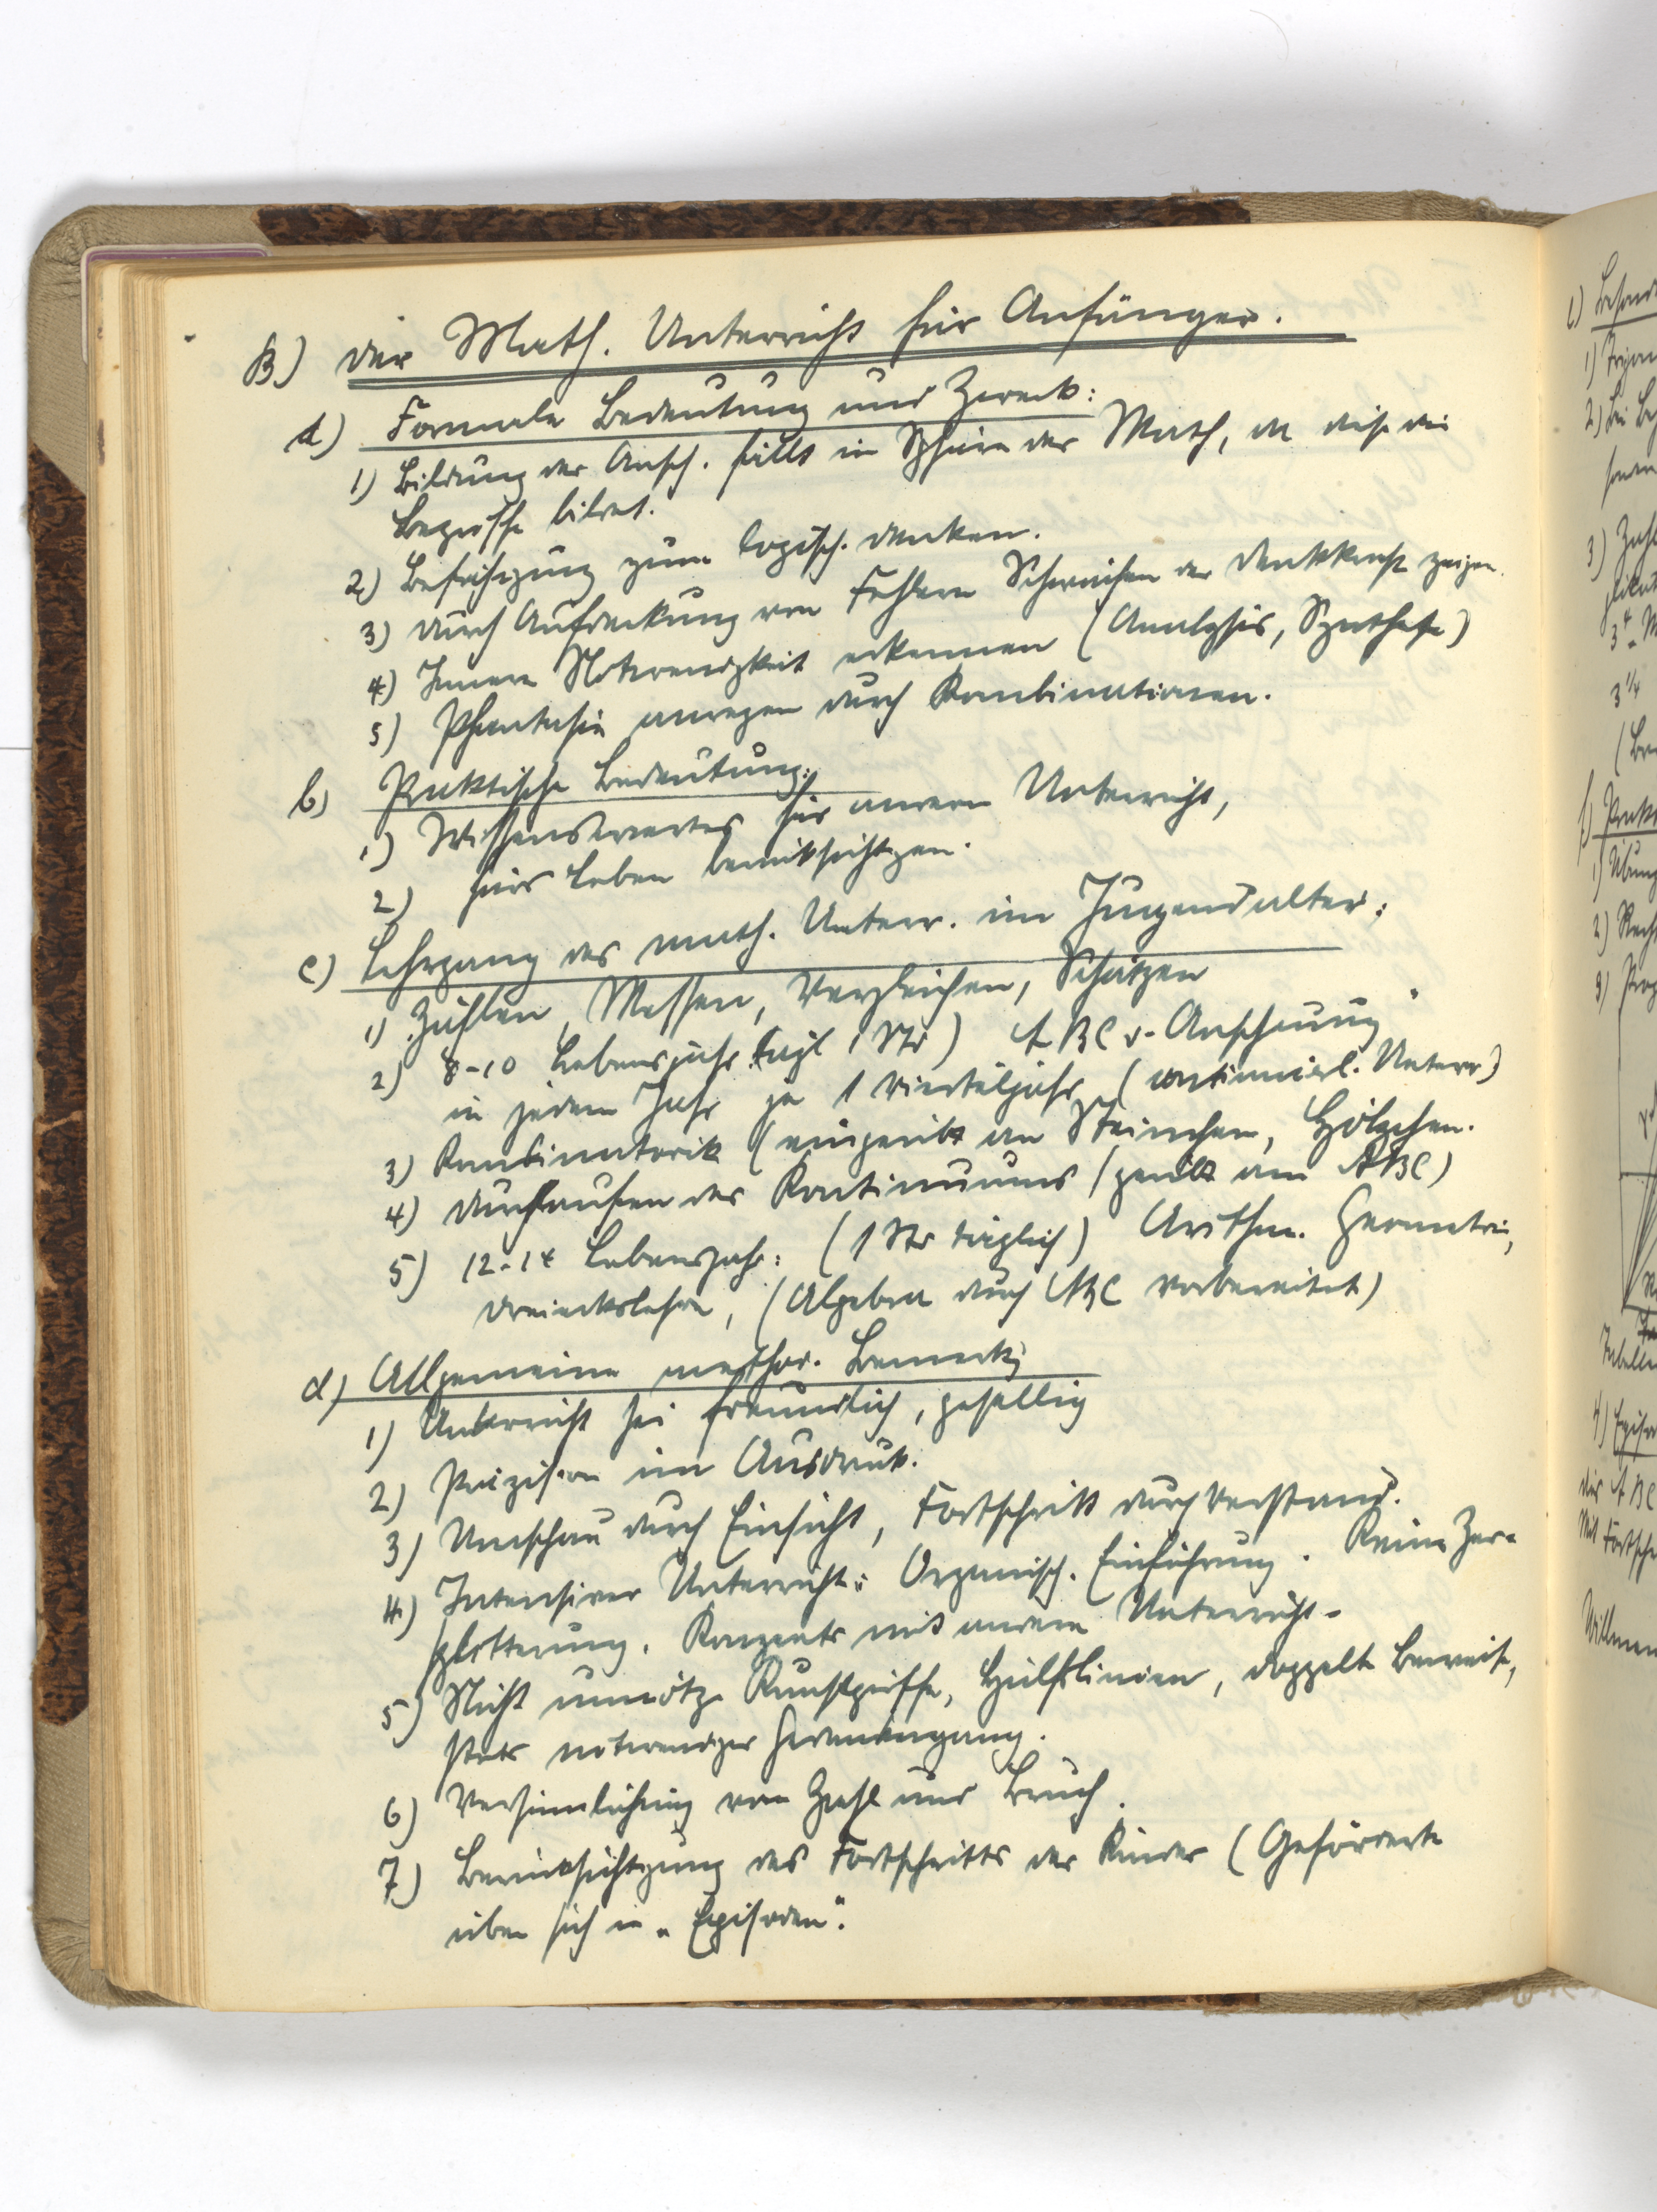 B) Der Math. Unterricht für Anfänger.
a) Formale Bedeutung und Zweck:
1) Bildung der Ansch. fällt in Sphäre der Math, da diese die
Begriffe bildet.
2) Befähigung zum logisch. Denken.
3) Durch Aufdeckung von Fehlern Schwächen der Denkkraft zeigen.
4) Innere Notwendigkeit erkennen (Analysis, Synthese)
5) Phantasie anregen durch Kombinationen.
b) Praktische Bedeutung:
1) Wissenswertes für andern Unterricht,
2) fürs Leben berücksichtigen.
c) Lehrgang des math. Unterr. im Jugendalter:
1) Zählen, Messen, Vergleichen, Schätzen
2) 8-10 Lebensjahr tägl 1 Std) ABC d. Anschauung
in jedem Jahr je 1 Vierteljahr (continuierl. Unterr)
3) Kombinatorik (eingeübt an Steinchen, Hölzchen.
4) Durchlaufen des Kontinuums (geübt am ABC)
5) 12-14 Lebensjahr: (1 Std täglich) Arithm. Geometrie,
Dreieckslehre, (Algebra durch ABC vorbereitet)
d) Allgemeine method. Bemerkg
1) Unterricht sei freundlich, gesellig
2) Präzision im Ausdruck.
3) Umschau durch Einsicht, Fortschritt durch Verstand.
4) Intensiver Unterricht: Organisch. Einführung. Keine Zer-
splitterung. Konzentr mit anderm Unterricht.
5) Nicht unnötge Kunstgriffe, Hülfslinien, doppelte Beweise,
stets notwendger Gedankengang.
6) Versinnlichung von Zahl und Bruch.
7) Berücksichtgung des Fortschritts der Kinder (Geförderte
üben sich in „Episoden".